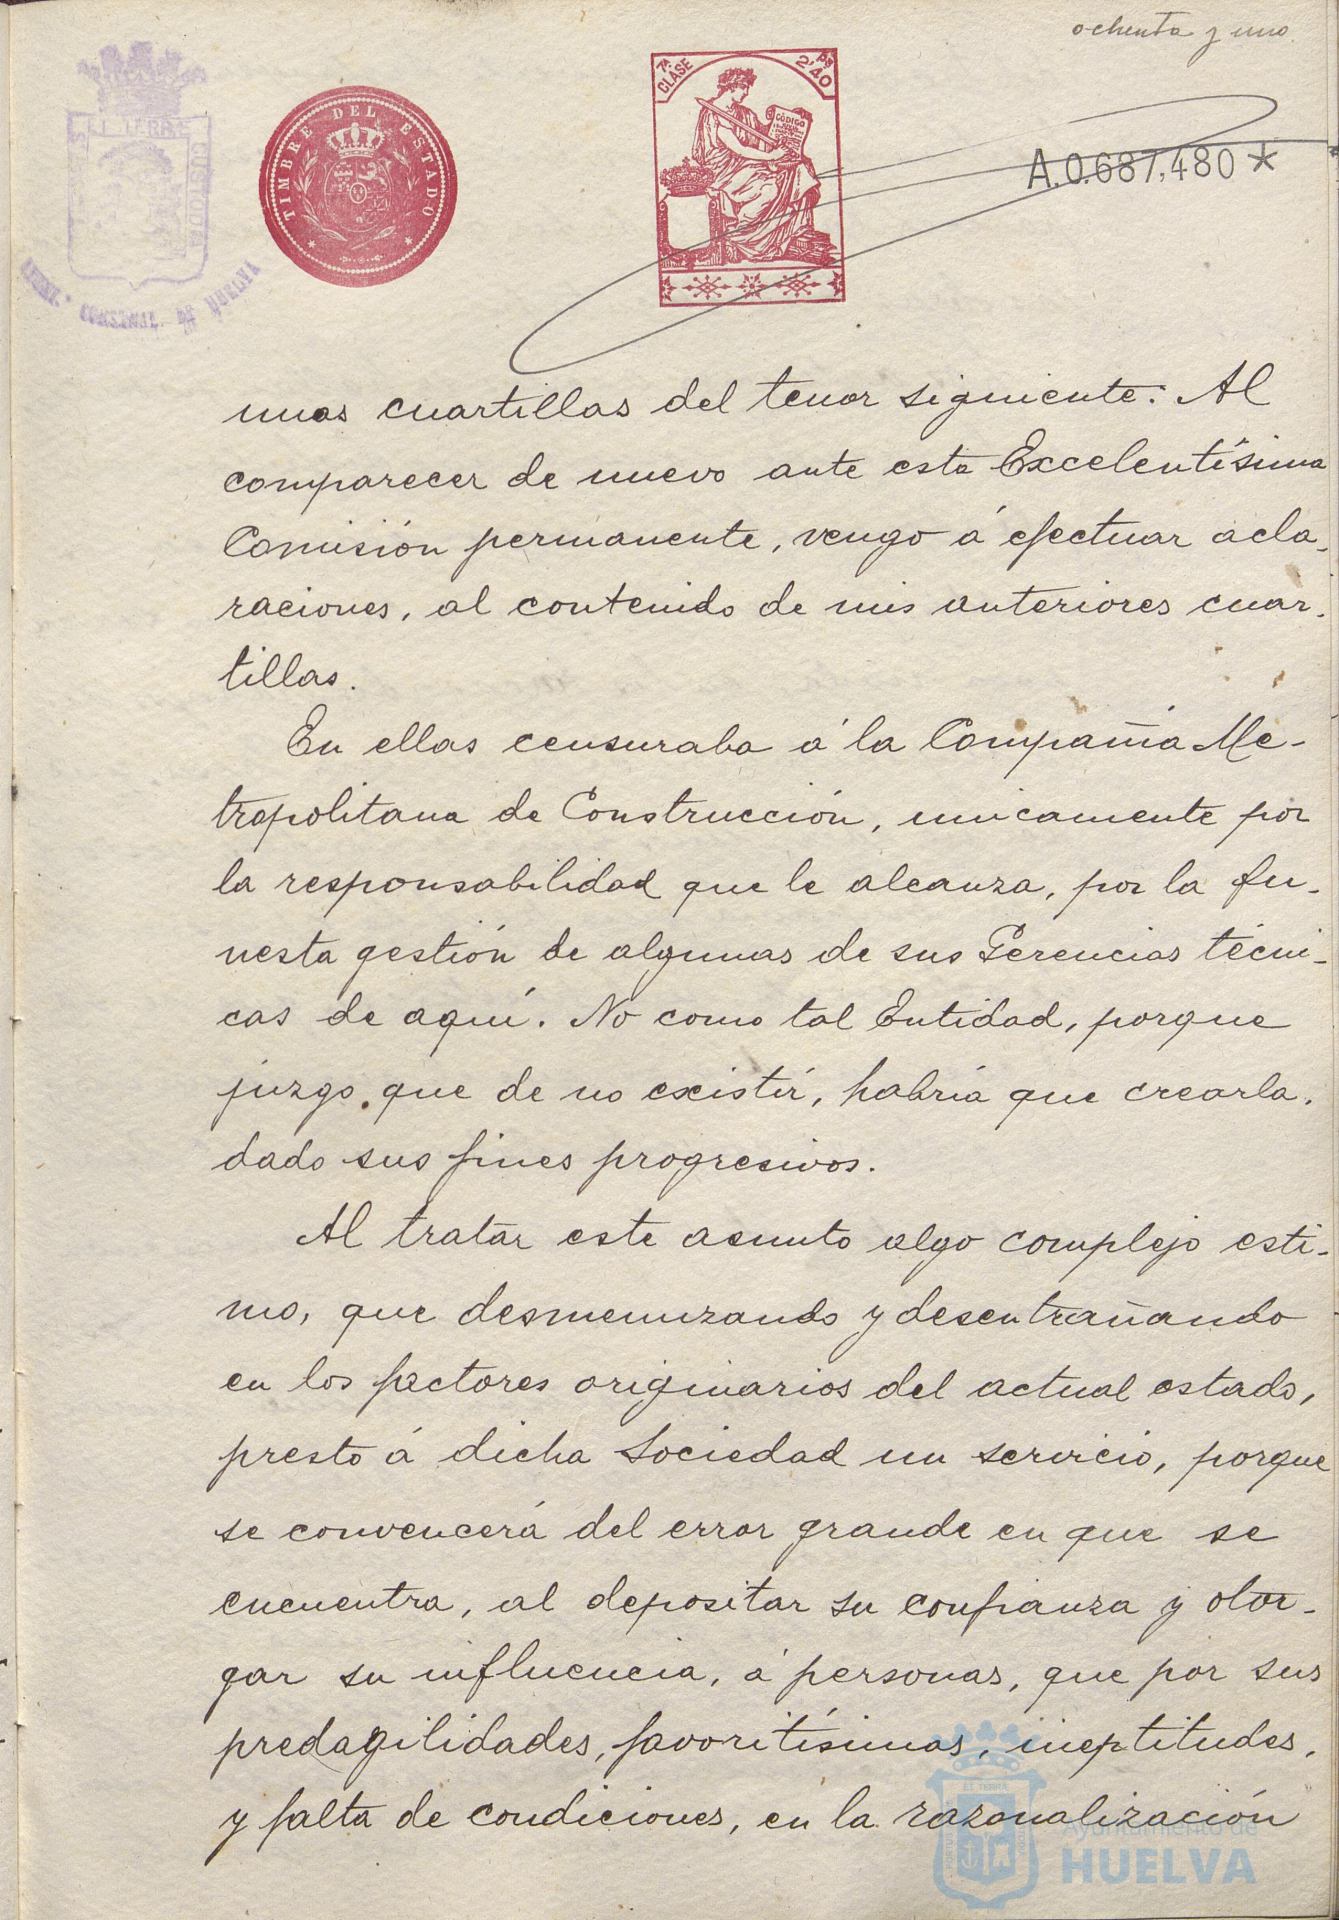 ochenta y uno
ET TERRÆ CUSTODIA
TIMBRE DEL ESTADO
7ª CLASE
2'40 Ps
CÓDIGO
A.0.687,480 *
unas cuartillas del tenor siguiente: Al
comparecer de nuevo ante esta Excelentísima
Comisión permanente, vengo á efectuar acla-
raciones, al contenido de mis anteriores cuar-
tillas.
En ellas censuraba á la Compañía Me-
tropolitana de Construcción, unicamente por
la responsabilidad que le alcanza, por la fu-
nesta gestión de algunas de sus Gerencias técni-
cas de aquí. No como tal Entidad, porque
juzgo que de no existir, habría que crearla,
dado sus fines progresivos.
Al tratar este asunto algo complejo esti-
mo, que desmenuzando y desentrañando
en los factores originarios del actual estado,
presto á dicha Sociedad un servicio, porque
se convencerá del error grande en que se
encuentra, al depositar su confianza y otor-
gar su influencia, á personas, que por sus
predagilidades, favoritísimas, ineptitudes,
y falta de condiciones, en la razonalización
Ayuntamiento de
HUELVA